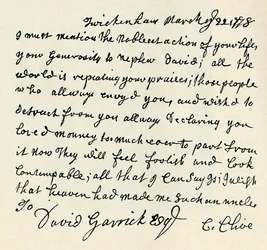 Twickenham March ye 22 1778
I must mention the Noblest action of your life,
your Generosity to nephew David; all the
world is repeating your praises; those people
who allway envyd you, and wishd to
detract from you allway Declaring you
loved monney too much ever to part from
it now They will feel foolish and look
Contempable; all that I Can Say Is; I wish
that heaven had made me Such an uncle
To
David Garrick Esqr
C: Clive